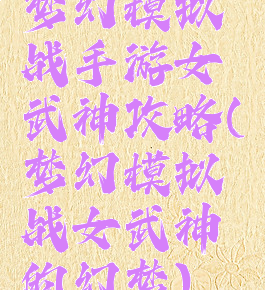 梦幻模拟
战手游女
武神攻略(
梦幻模拟
战女武神
的幻梦)